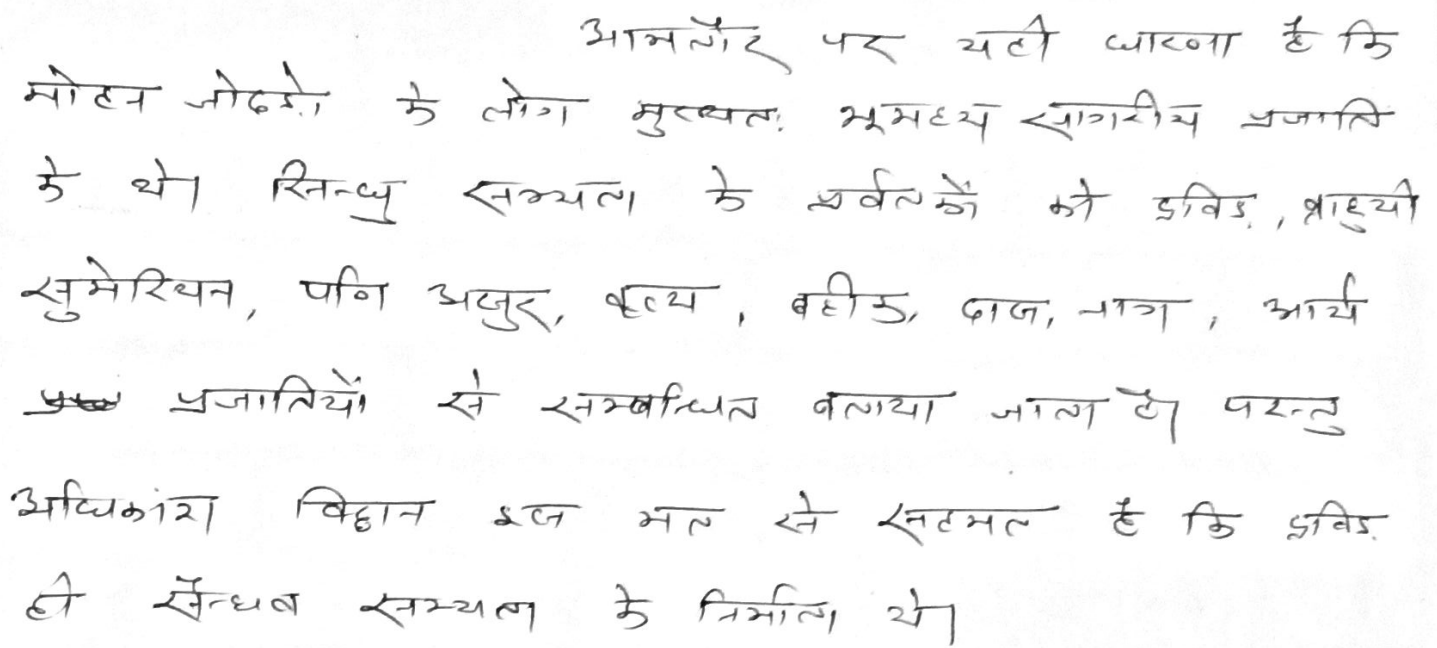 आमतौर पर यही धारणा है कि
मोहन जोदड़ो के लोग मुख्यतः भूमध्य सागरीय प्रजाति
के थे। सिन्धु सभ्यता के प्रर्वतकों को द्रविड़, ब्राहुयी
सुमेरियन, पणि असुर, वृत्य, बहीक, दास, नाग, आर्य
प्रजातियों से सम्बन्धित बताया जाता है। परन्तु
अधिकांश विद्वान इस मत से सहमत है कि द्रविड़
ही सैन्धव सभ्यता के निर्माता थे।